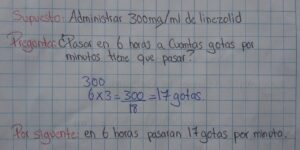 Supuesto: Administrar 300mg/ml de linezolid
Pregunta: ¿Pasar en 6 horas a Cuantas gotas por
minutos tiene que pasar?
300
6x3 = 300 = 17 gotas.
18
Por siguiente: en 6 horas pasaran 17 gotas por minuto.